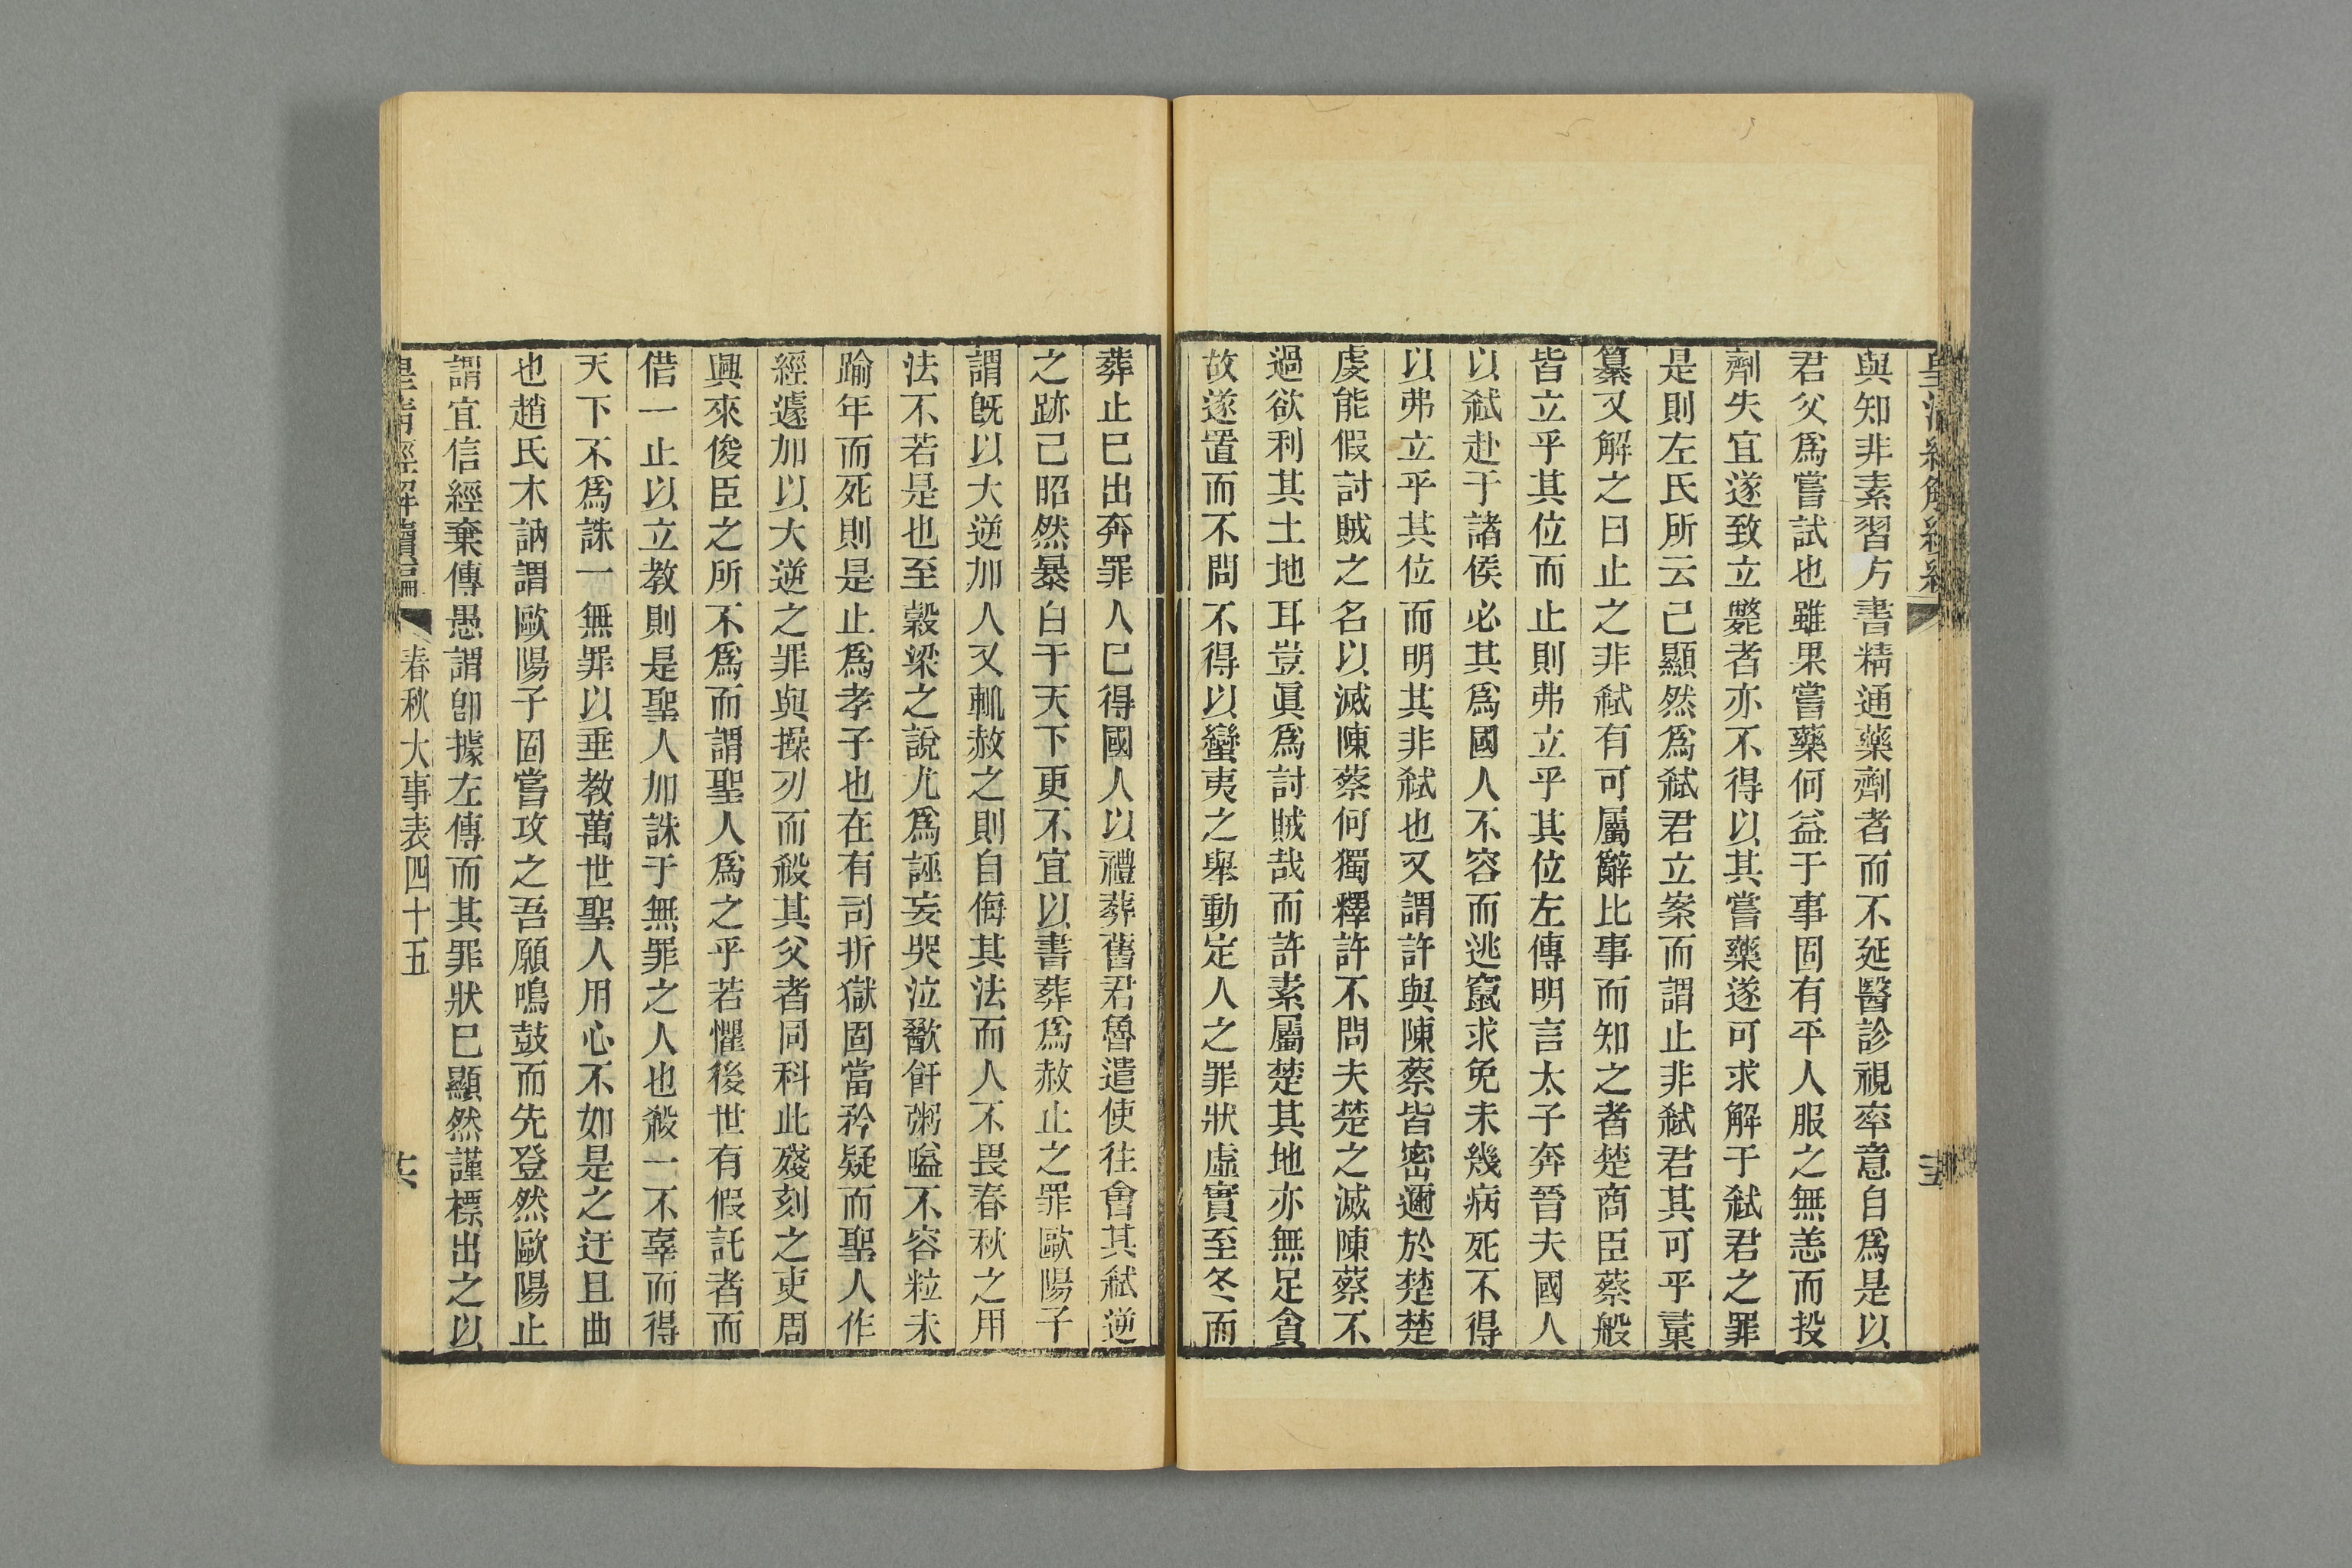 與知非素習方書精通藥劑者而不延醫診視率意自爲是以
君父爲嘗試也雖果嘗藥何益于事固有平人服之無恙而投
劑失宜遂致立斃者亦不得以其嘗藥遂可求解于弑君之罪
是則左氏所云已顯然爲弑君立案而謂止非弑君其可乎藁
纂又解之曰止之非弑有可屬辭比事而知之者楚商臣蔡般
皆立乎其位而止則弗立乎其位左傳明言太子奔晉夫國人
以弑赴于諸侯必其爲國人不容而逃竄求免未幾病死不得
以弗立乎其位而明其非弑也又謂許與陳蔡皆密邇於楚楚
虔能假討賊之名以滅陳蔡何獨釋許不問夫楚之滅陳蔡不
過欲利其土地耳豈眞爲討賊哉而許素屬楚其地亦無足貪
故遂置而不問不得以蠻夷之舉動定人之罪狀虛實至冬而
葬止巳出奔罪人巳得國人以禮葬舊君魯遣使往會其弑逆
之跡已昭然暴白于天下更不宜以書葬爲赦止之罪歐陽子
謂旣以大逆加人又輒赦之則自侮其法而人不畏春秋之用
法不若是也至穀梁之說尤爲誣妄哭泣歠飦粥嗌不容粒未
踰年而死則是止爲孝子也在有司折獄固當矜疑而聖人作
經遽加以大逆之罪與操刃而殺其父者同科此殘刻之吏周
興來俊臣之所不爲而謂聖人爲之乎若懼後世有假託者而
借一止以立教則是聖人加誅于無罪之人也殺一不辜而得
天下不爲誅一無罪以垂教萬世聖人用心不如是之迂且曲
也趙氏木訥謂歐陽子固嘗攻之吾願鳴鼓而先登然歐陽止
謂宜信經棄傳愚謂卽據左傳而其罪狀巳顯然謹標出之以
皇清經解續編 春秋大事表四十五 六